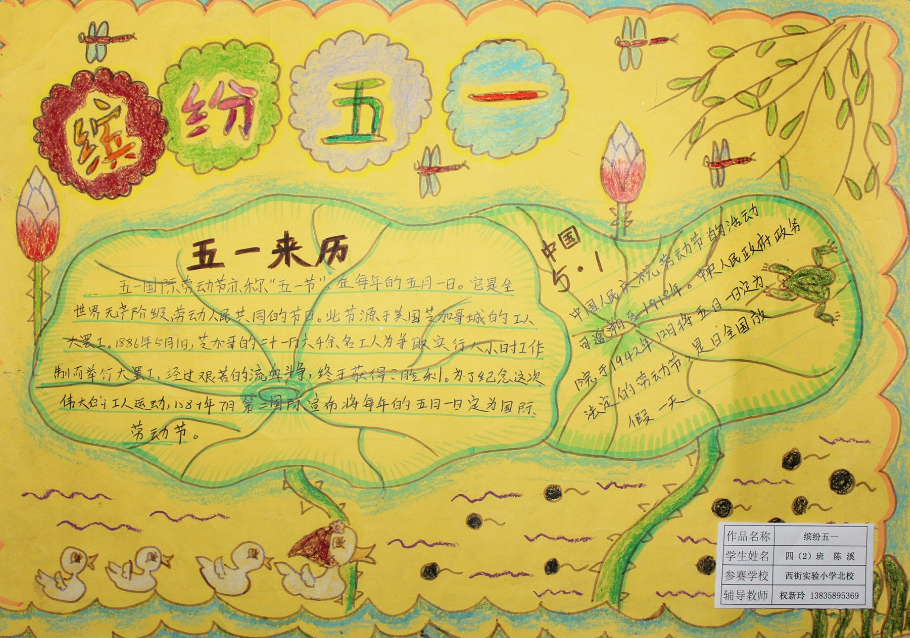 缤纷五一
五一来历
五一国际劳动节亦称“五一节”,在每年的五月一日。它是全
世界无产阶级、劳动人民共同的节日。此节源于美国芝加哥城的工人
大罢工。1886年5月1日,芝加哥的二十一万六千余名工人为争取实行八小时工作
制而举行大罢工,经过艰苦的流血斗争,终于获得了胜利。为了纪念这次
伟大的工人运动,1889年7月第二国际宣布将每年的五月一日定为国际
劳动节。
中国
5·1
中国人民庆祝劳动节的活动
可追溯至1918年。中央人民政府政务
院于1949年12月将五月一日定为
法定的劳动节,是日全国放
假一天。
作品名称 缤纷五一
学生姓名 四(2)班 陈溪
参赛学校 西街实验小学北校
辅导教师 权新玲 13835895369